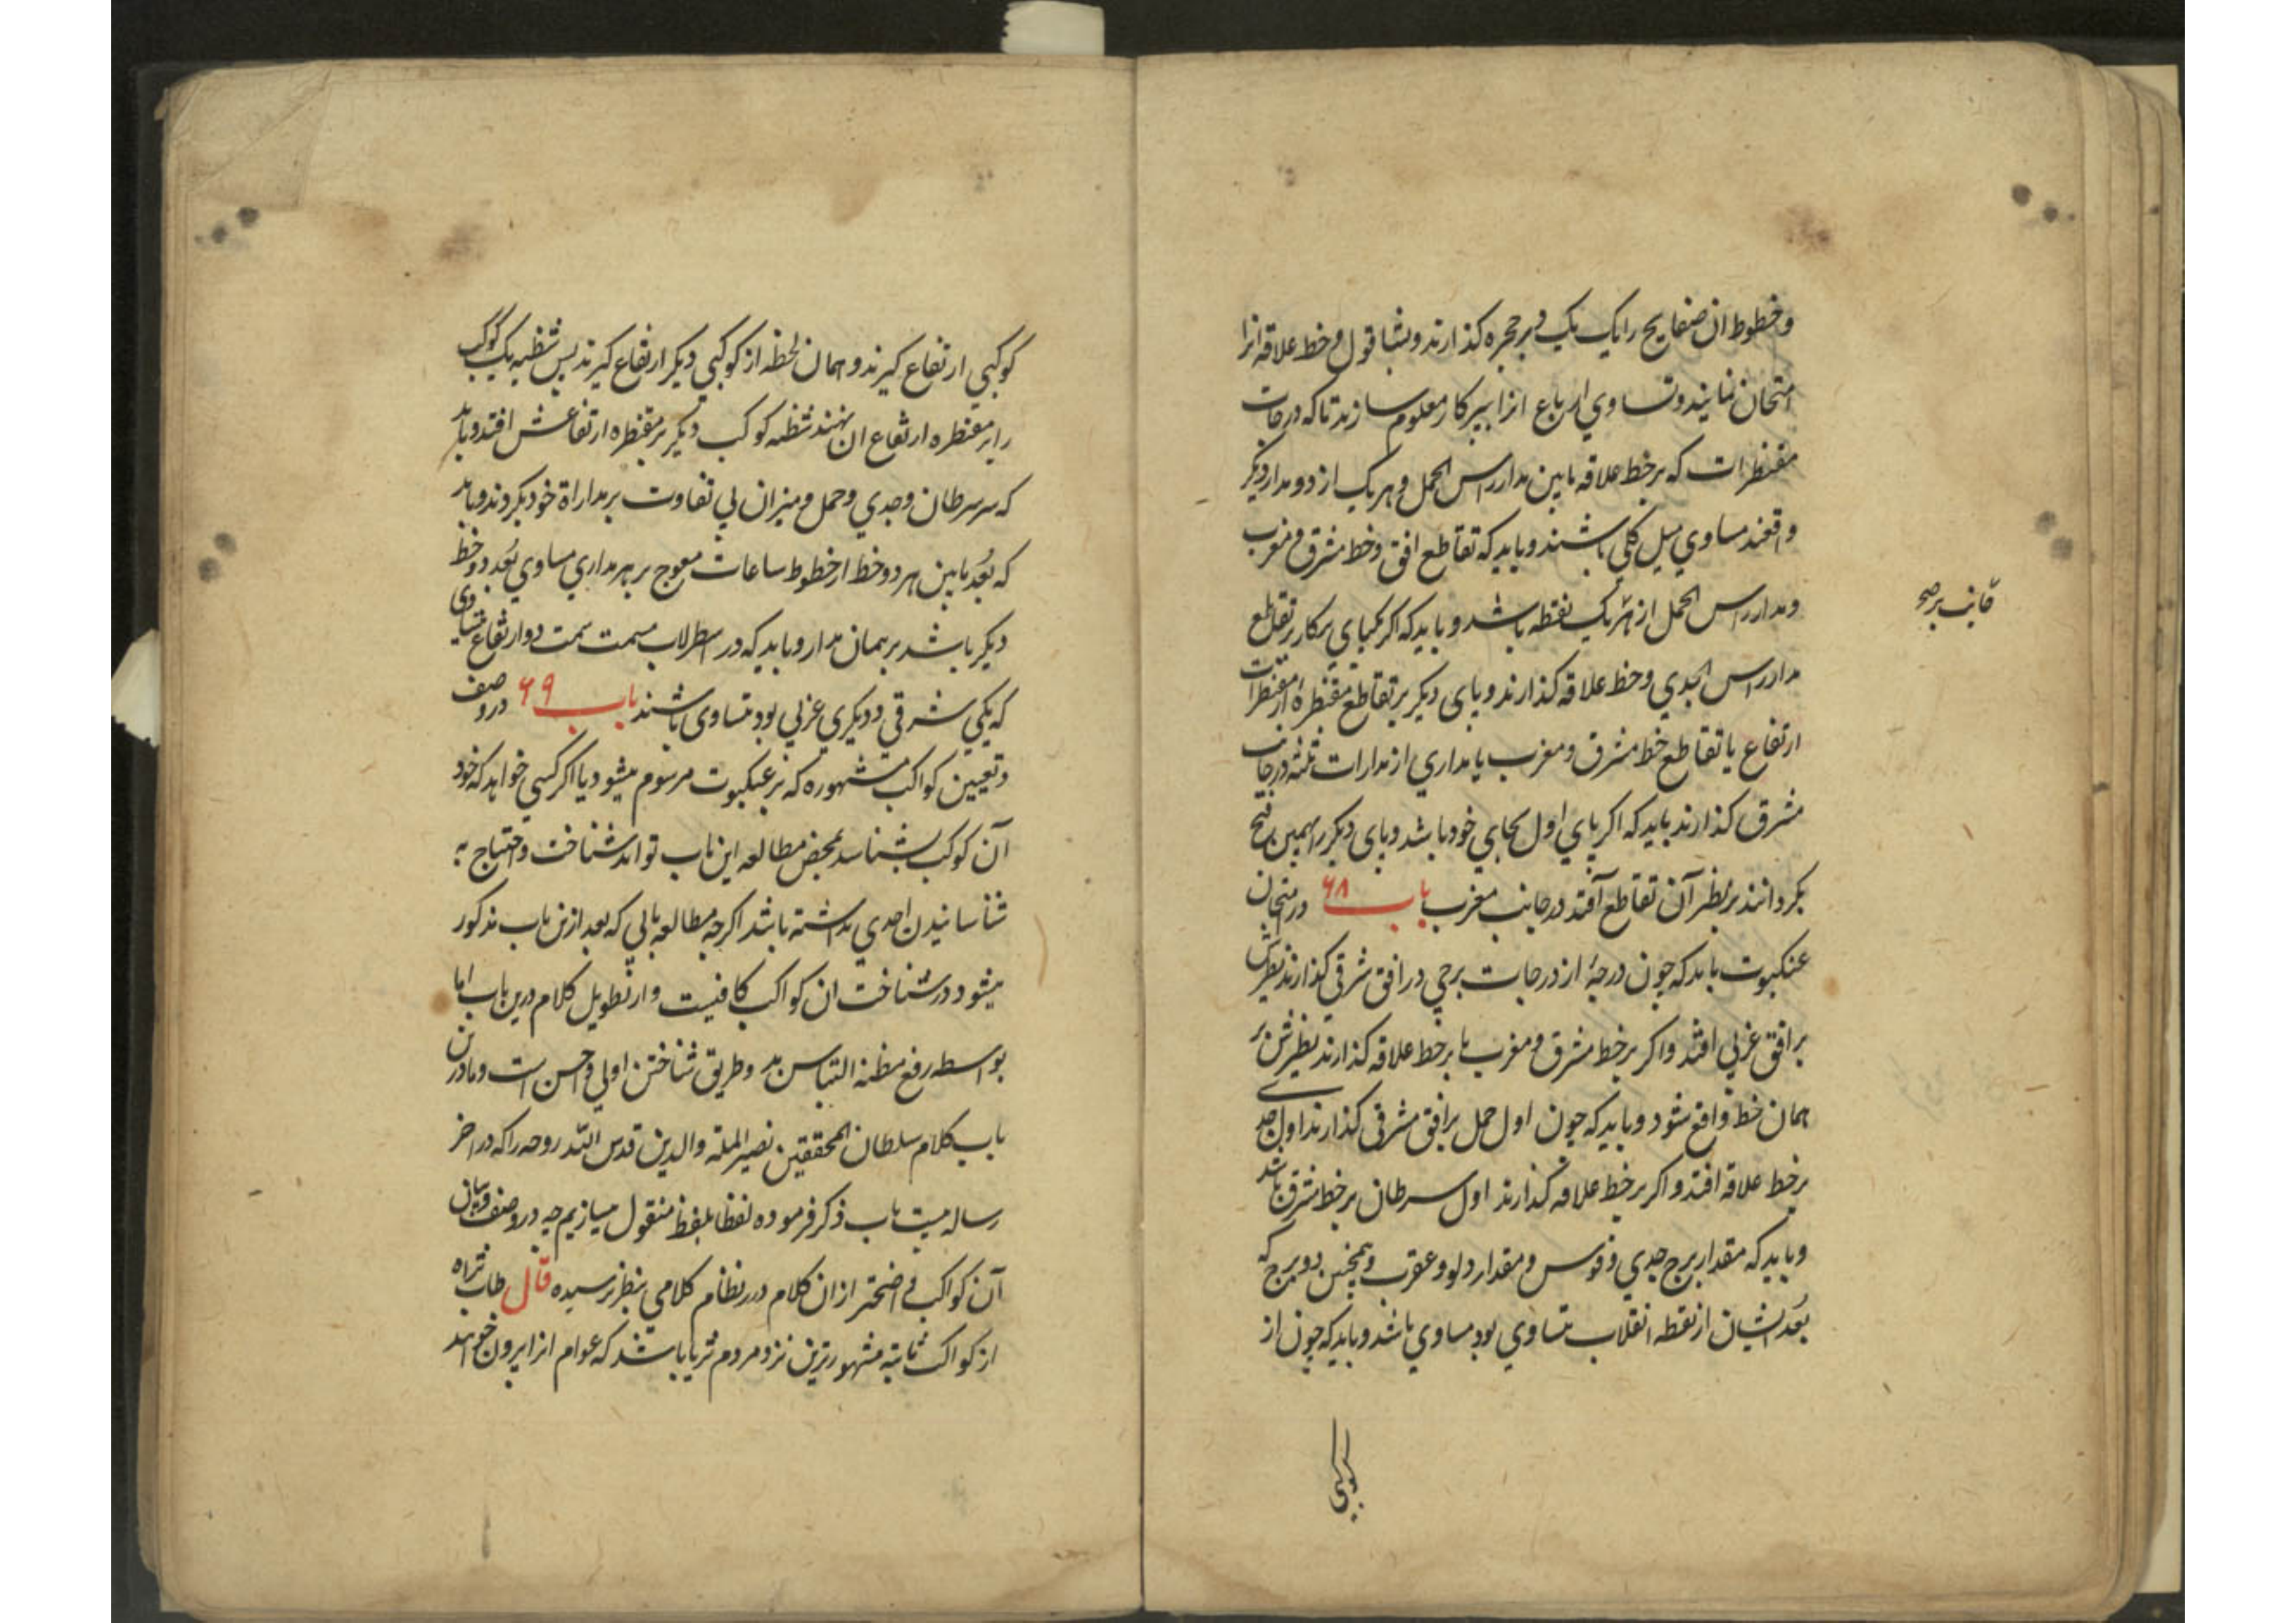 و خطوط ان صفایح را یک یک در حجره کذارند و بشاقول و خط علاقه انرا
امتحان نمایند و تساوی ارباع انرا ببرکار معلوم سازند تا که درجات
مقنطرات که بر خط علاقه مابین مدار راس الحمل و هر یک از دو مدار دیکر
واقعند مساوی میل کلی باشند و باید که تقاطع افق و خط مشرق و مغرب
و مدار راس الحمل از هر یک نقطه باشد و باید که اکر یکپای برکار بر تقاطع
مدار راس الجدی و خط علاقه کذارند و پای دیکر بر تقاطع مقنطرهٔ از مقنطرات
ارتفاع یا تقاطع خط مشرق و مغرب یا مداری از مدارات ثلثه در جانب
مشرق کذارند باید که اکر پای اول بجای خود باشد و پای دیکر را بهمین فتح
بکردانند بر نظیر آن تقاطع آفتد در جانب مغرب باب ۶۸ در امتحان
عنکبوت باید که چون درجهٔ از درجات برجی در افق شرقی کذارند نظیرش
بر افق غربی افتد و اکر بر خط مشرق و مغرب یا بر خط علاقه کذارند نظیرش بر
همان خط واقع شود و باید که چون اول حمل بر افق مشرقی کذارند اول جدی
بر خط علاقه افتد و اکر بر خط علاقه کذارند اول سرطان بر خط مشرق باشد
و باید که مقدار برج جدی و قوس و مقدار دلو و عقرب و همچنین دو برج که
بُعد ایشان از نقطه انقلاب متساوی بود مساوی باشد و باید که چون از
کوکبی
کوکبی ارتفاع کیرند و همان لحظه از کوکبی دیکر ارتفاع کیرند پس شظیه یک کوکب
را بر مقنطره ارتفاع ان نهند شظیه کوکب دیکر بر مقنطره ارتفاعش افتد و باید
که سر سرطان و جدی و حمل و میزان بی تفاوت بر مداراة خود بکردند و باید
که بُعد مابین هر دو خط از خطوط ساعات معوج بر هر مداری مساوی بُعد دو خط
دیکر باشد بر همان مدار و باید که در اسطرلاب مسمت سمت دو ارتفاع متساوی
که یکی شرقی و دیکری غربی بود متساوی باشند باب ۶۹ در وصف
و تعیین کواکب مشهوره که بر عنکبوت مرسوم میشود یا اکر کسی خواهد که خود
آن کوکب بشناسد بمحض مطالعه این باب تواند شناخت و احتیاج به
شناسانیدن احدی نداشته باشد اکرچه مطالعه بابی که بعد ازین باب مذکور
میشود در شناخت ان کواکب کافیست و از تطویل کلام درین باب اما
بواسطه رفع مظنه التباس بد و طریق شناختن اولی و احسن است و ما درین
باب کلام سلطان المحققین نصیر الملة والدین قدس الله روحه را که در اخر
رساله بیست باب ذکر فرموده لفظا بلفظ منقول میسازیم چه در وصف و بیان
آن کواکب واضحتر از ان کلام در نظام کلامی بنظر نرسیده قال طاب ثراه
از کواکب ثابته مشهورترین نزد مردم ثریا باشند که عوام انرا پرون خوانند